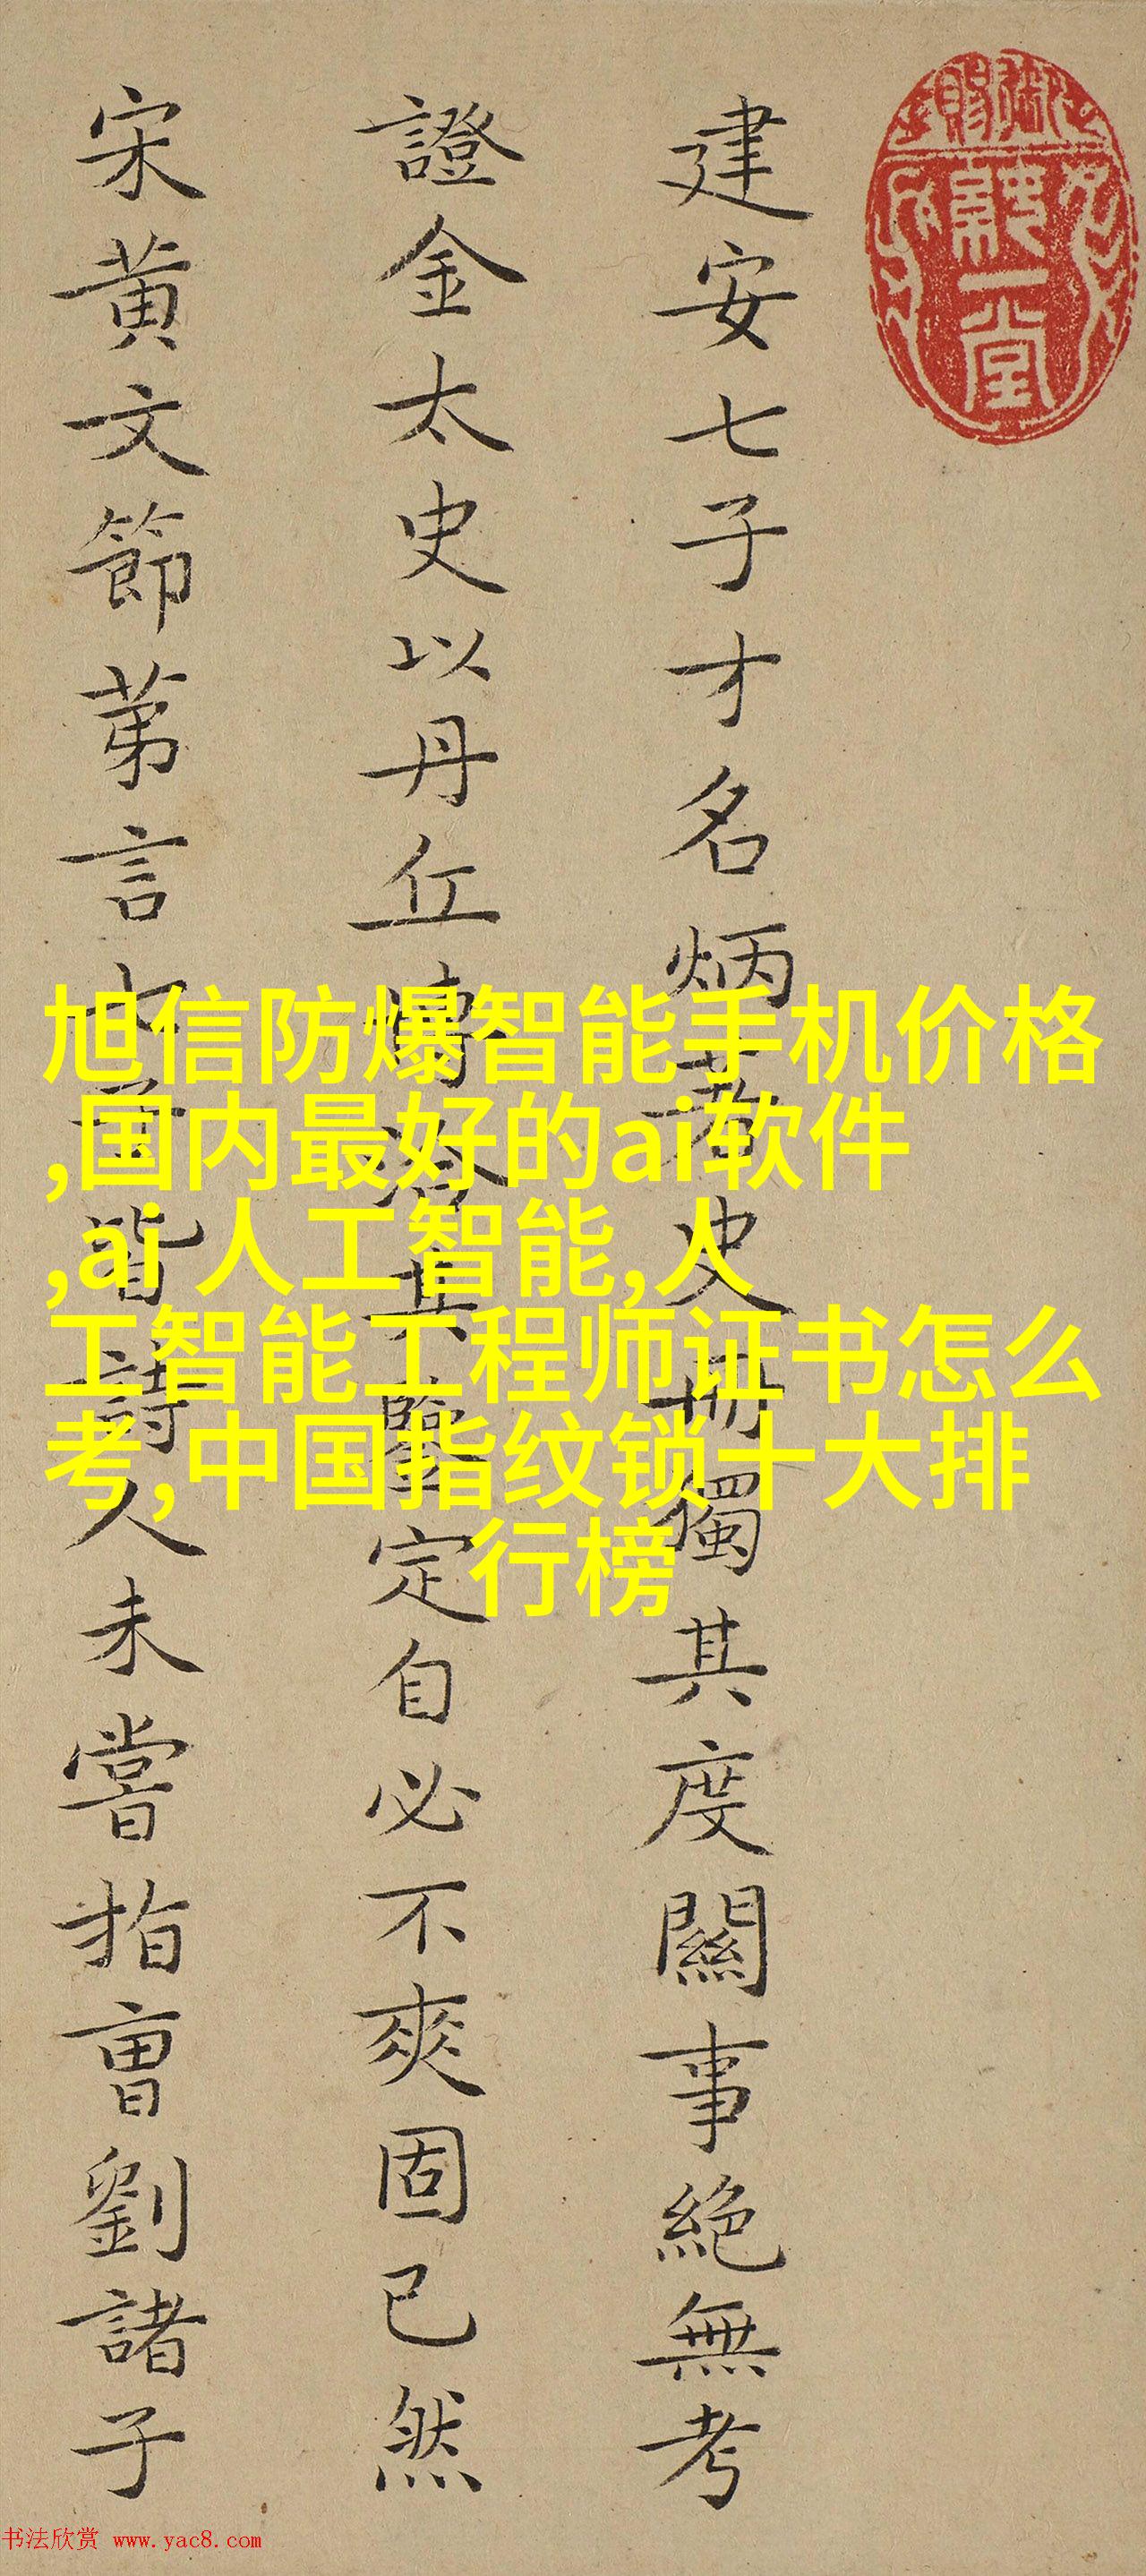 建安七子才名炳著史冊獨其度關事絕無考
證金太史以丹丘博洽其鑒定自必不爽固已然
宋黃文節苐言七子皆詩人未嘗指曹劉諸子
旭信防爆智能手机价格
,国内最好的ai软件
,ai 人工智能,人
工智能工程师证书怎么
考,中国指纹锁十大排
行榜
书法欣赏 www.yac8.com